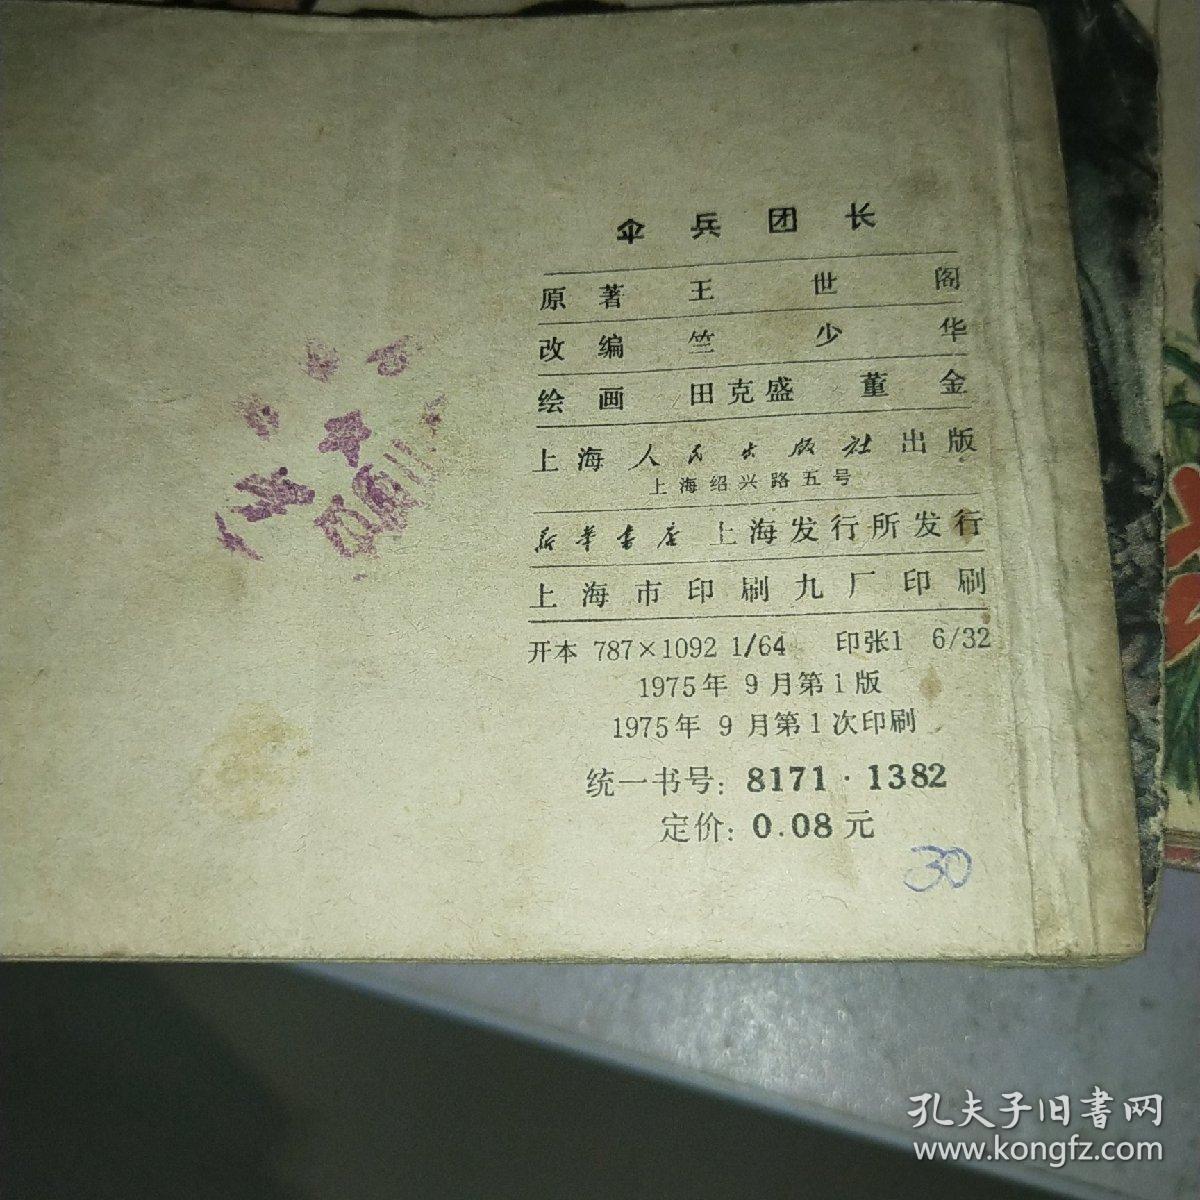 伞兵团长
原著 王世阁
改编 竺少华
绘画 田克盛 董金
上海人民出版社出版
上海绍兴路五号
新华书店上海发行所发行
上海市印刷九厂印刷
开本 787×1092 1/64 印张1 6/32
1975年9月第1版
1975年9月第1次印刷
统一书号: 8171·1382
定价: 0.08元
30
孔夫子旧書网
www.kongfz.com